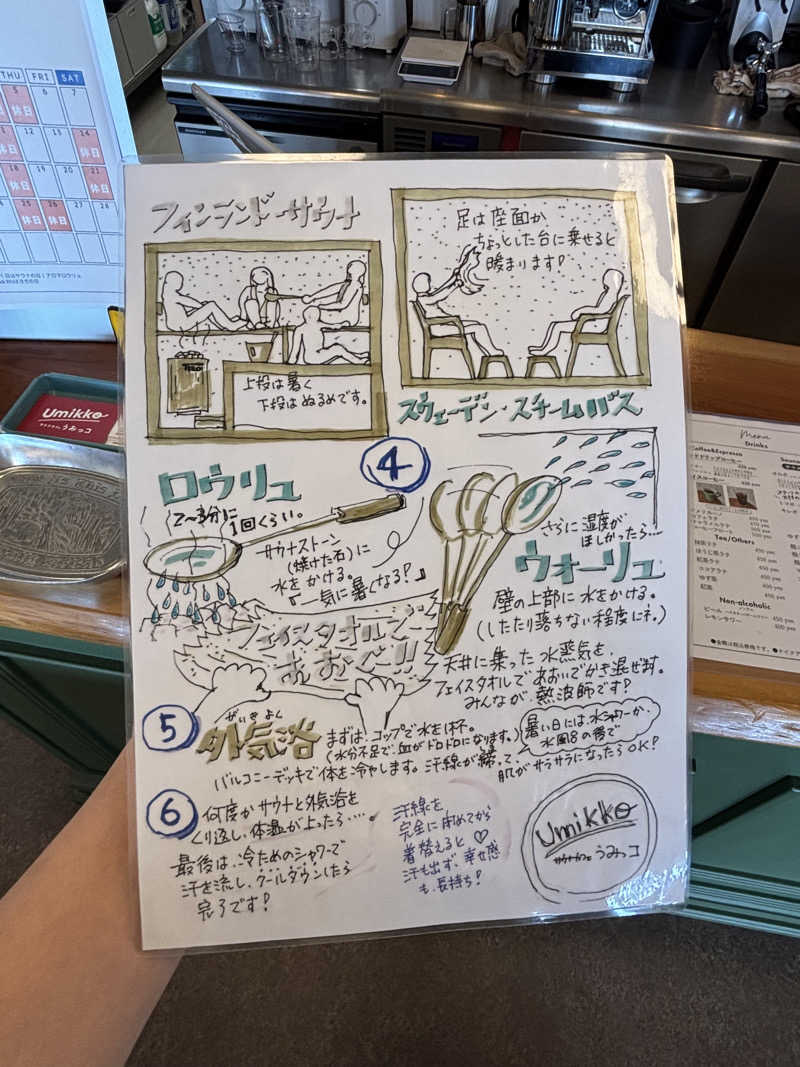 THU FRI SAT
5 6 7
休日
12 13 14
休日
休日
19 20 21
休日
休日
25 26 27 28
休日 休日
Umikko
フィンランド・サウナ
上段は暑く
下段はぬるめです。
足は座面か
ちょっとした台に乗せると
暖まります!
スウェーデン・スチームバス
4
ロウリュ
2〜3分に
1回くらい。
サウナストーン
(焼けた石)に
水をかける。
『一気に暑くなる!』
フェイスタオルで
あおぐ!!
さらに湿度が
ほしかったら…
ウォーリュ
壁の上部に水をかける。
(したたり落ちない程度にネ。)
天井に集った水蒸気を、
フェイスタオルであおいでかき混ぜます。
みんなが、熱波師です!
5
がいきよく
外気浴
まずは、コップで水を1杯。
(水分不足で、血がドロドロになります。)
バルコニーデッキで体を冷やします。汗線が締って、
肌がサラサラになったらOK!
暑い日には、水シャワーか、
水風呂の後で
6
何度かサウナと外気浴を
くり返し、体温が上ったら….
最後は、冷ためのシャワーで
汗を流し、クールダウンしたら
完了です!
汗線を、
完全に閉めてから
着替えると♡
汗も出ず、幸せ感
も、長持ち!
Umikko
サウナカフェ うみっコ
Menu
Drinks
Coffee&Espresso
Tea/Others
抹茶ラテ
ほうじ茶ラテ
紅茶ラテ
ココアラテ
ゆず茶
紅茶
Non-alcoholic
ビール
レモンサワー
450 yen